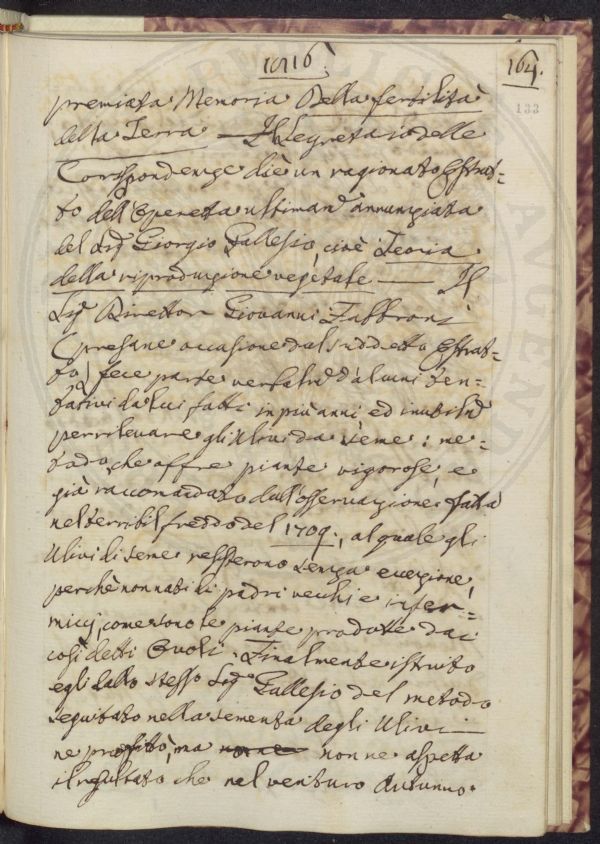 1816.
164.
133
premiata Memoria Della fertilità
della Terra — Il Segretario delle
Corrispondenze diè un ragionato Estrat=
to dell'Operetta ultimam.e annunziata
del Sig.r Giorgio Gallesio, cioè Teoria
della riproduzione vegetale — Il
Sig.r Direttor Giovanni Fabbroni
(presane occasione dal suddetto Estrat=
to) fece parte verbalm.e d'alcuni ten=
tativi da lui fatti in più anni ed inutilm.e
per rilevare gli Ulivi da seme: me=
todo, che offre piante vigorose, e
già raccomandato dall'osservazione fatta
nel terribil freddo del 1709., al quale gli
Ulivi di seme resisterono senza eccezione,
perchè non nati di padri vecchi e infer=
micci, come sono le piante prodotte dai
così detti Ovoli. Finalmente istruito
egli dallo stesso Sig.r Gallesio del metodo
seguitato nella sementa degli Ulivi
ne profittò, ma non ne aspetta
il resultato che nel venturo Autunno.